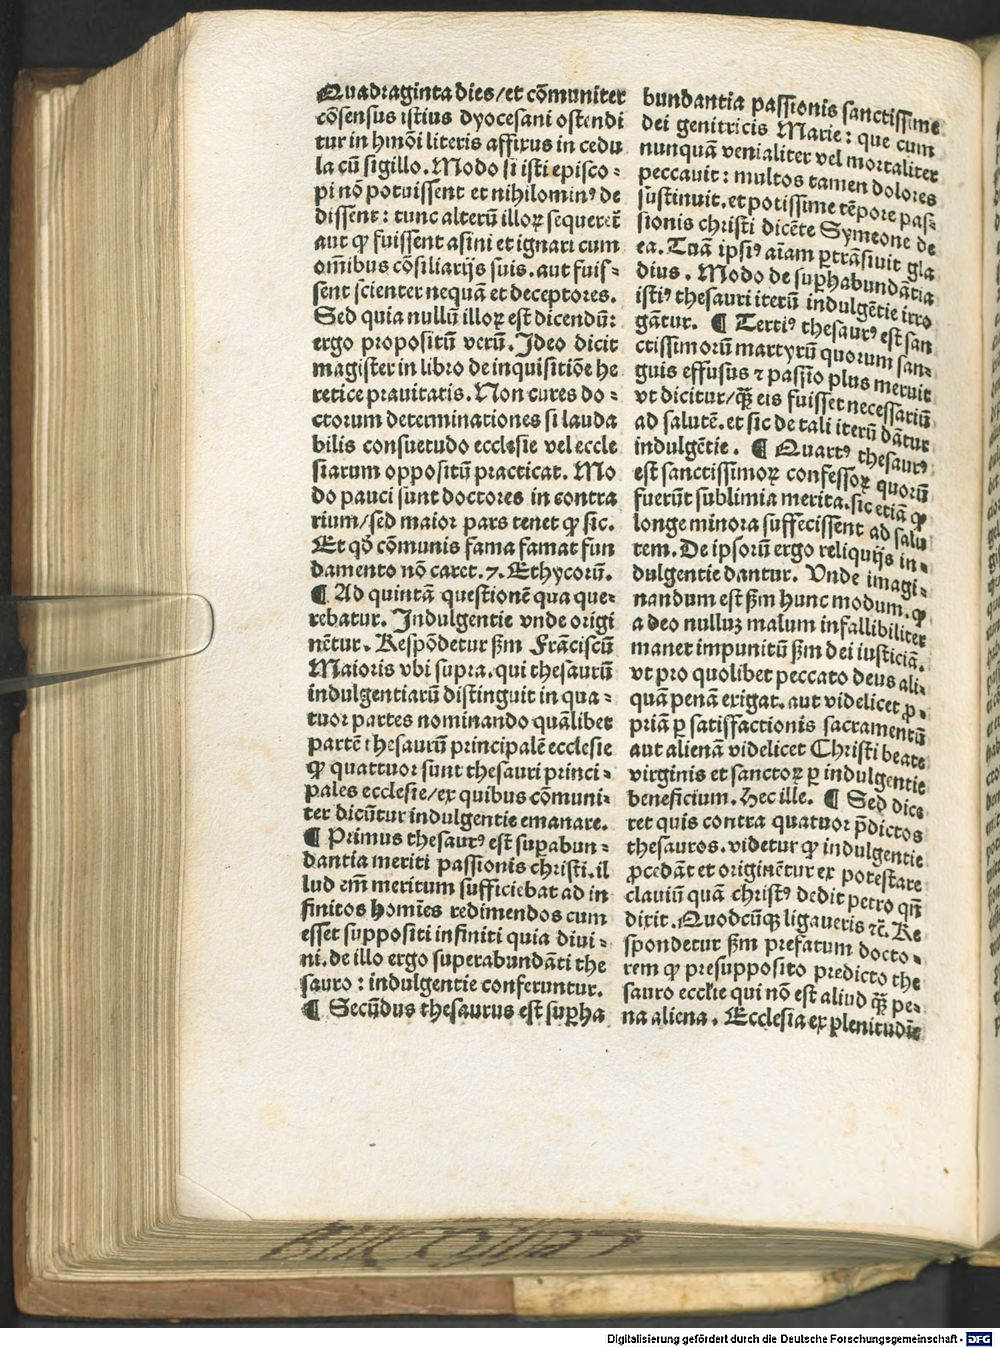 Quadraginta dies/et cōmuniter
cōsensus istius dyocesani ostendi
tur in hmōi literis affixus in cedu
la cū sigillo. Modo si isti episco-
pi nō potuissent et nihilominꝰ de
dissent: tunc alterū illoꝝ sequeret̄
aut ꝙ fuissent asini et ignari cum
om̄ibus cōsiliarijs suis. aut fuis-
sent scienter nequā et deceptores.
Sed quia nullū illoꝝ est dicendū:
ergo propositū verū. Ideo dicit
magister in libro de inquisitiōe he
retice prauitatis. Non cures do-
ctorum determinationes si lauda
bilis consuetudo ecclesie vel eccle
siarum oppositū practicat. Mo
do pauci sunt doctores in contra
rium/sed maior pars tenet ꝙ sic.
Et qđ cōmunis fama famat fun
damento nō caret. 7. Ethycorū.
¶ Ad quintā questionē qua que-
rebatur. Indulgentie vnde origi
nētur. Respōdetur ẜm Frāciscū
Maioris vbi supra. qui thesaurū
indulgentiarū distinguit in qua-
tuor partes nominando quālibet
partē thesaurū principalē ecclesie
ꝙ quattuor sunt thesauri princi-
pales ecclesie/ex quibus cōmuni-
ter dicūtur indulgentie emanare.
¶ Primus thesaurꝰ est suꝑabun-
dantia meriti passionis christi. il
lud em̄ meritum sufficiebat ad in
finitos homīes redimendos cum
esset suppositi infiniti quia diui-
ni. de illo ergo superabundāti the
sauro: indulgentie conferuntur.
¶ Secūdus thesaurus est suꝑha
bundantia passionis sanctissime
dei genitricis Marie: que cum
nunquā venialiter vel mortaliter
peccauit: multos tamen dolores
sustinuit. et potissime tēpore pas-
sionis christi dicēte Symeone de
ea. Tuā ipsiꝰ aīam ꝑtrāsiuit gla
dius. Modo de suꝑhabundātia
istiꝰ thesauri iterū indulgētie irro
gātur. ¶ Tertiꝰ thesaurꝰ est san
ctissimorū martyrū quorum san-
guis effusus ⁊ passio plus meruit
vt dicitur/ꝙ̄ eis fuisset necessariū
ad salutē. et sic de tali iterū dātur
indulgētie. ¶ Quartꝰ thesaurꝰ
est sanctissimoꝝ confessoꝝ quorū
fuerūt sublimia merita. sic etiā ꝙ
longe minora suffecissent ad salu
tem. De ipsorū ergo reliquijs in-
dulgentie dantur. Vnde imagi-
nandum est ẜm hunc modum. ꝙ
a deo nulluꝫ malum infallibiliter
manet impunitū ẜm dei iusticiā.
vt pro quolibet peccato deus ali-
quā penā exigat. aut videlicet ꝓ-
priā ꝑ satisfactionis sacramentū
aut alienā videlicet Christi beate
virginis et sanctoꝝ ꝑ indulgentie
beneficium. Hec ille. ¶ Sed dice
ret quis contra quatuor p̄dictos
thesauros. videtur ꝙ indulgentie
ꝓcedāt et originētur ex potestate
clauiū quā christꝰ dedit petro qn̄
dixit. Quodcūqꝫ ligaueris ⁊c̄. Re
spondetur ẜm prefatum docto-
rem ꝙ presupposito predicto the
sauro eccl̄ie qui nō est aliud ꝙ̄ pe-
na aliena. Ecclesia ex plenitudīe
Digitalisierung gefördert durch die Deutsche Forschungsgemeinschaft - DFG